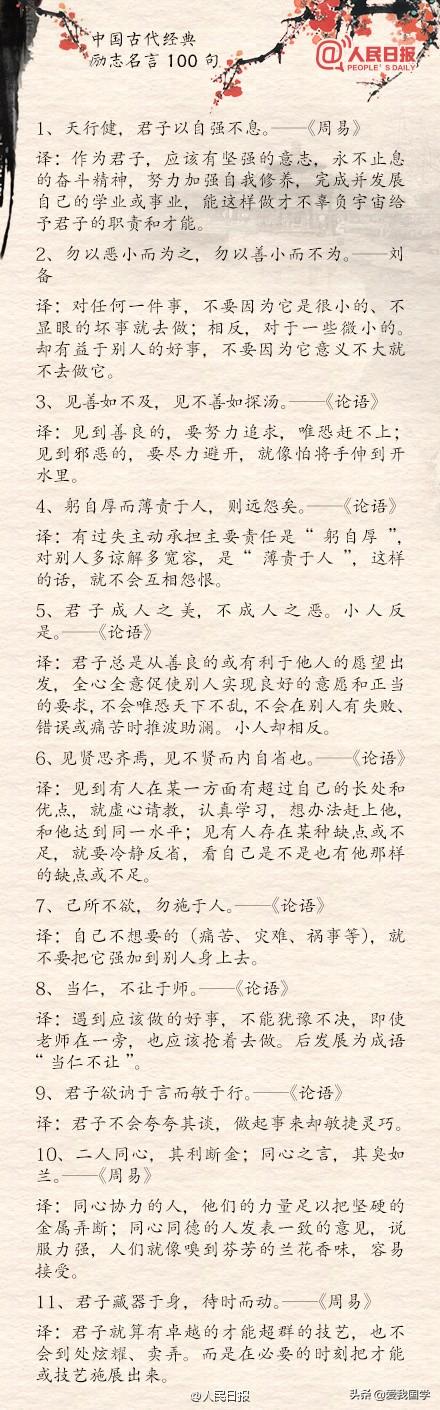 中国古代经典
励志名言100句
@人民日报
PEOPLE'S DAILY
1、天行健，君子以自强不息。——《周易》
译：作为君子，应该有坚强的意志，永不止息
的奋斗精神，努力加强自我修养，完成并发展
自己的学业或事业，能这样做才不辜负宇宙给
予君子的职责和才能。
2、勿以恶小而为之，勿以善小而不为。——刘
备
译：对任何一件事，不要因为它是很小的、不
显眼的坏事就去做；相反，对于一些微小的。
却有益于别人的好事，不要因为它意义不大就
不去做它。
3、见善如不及，见不善如探汤。——《论语》
译：见到善良的，要努力追求，唯恐赶不上；
见到邪恶的，要尽力避开，就像怕将手伸到开
水里。
4、躬自厚而薄责于人，则远怨矣。——《论语》
译：有过失主动承担主要责任是“躬自厚”，
对别人多谅解多宽容，是“薄责于人”，这样
的话，就不会互相怨恨。
5、君子成人之美，不成人之恶。小人反
是。——《论语》
译：君子总是从善良的或有利于他人的愿望出
发，全心全意促使别人实现良好的意愿和正当
的要求，不会唯恐天下不乱，不会在别人有失败、
错误或痛苦时推波助澜。小人却相反。
6、见贤思齐焉，见不贤而内自省也。——《论语》
译：见到有人在某一方面有超过自己的长处和
优点，就虚心请教，认真学习，想办法赶上他，
和他达到同一水平；见有人存在某种缺点或不
足，就要冷静反省，看自己是不是也有他那样
的缺点或不足。
7、己所不欲，勿施于人。——《论语》
译：自己不想要的（痛苦、灾难、祸事等），就
不要把它强加到别人身上去。
8、当仁，不让于师。——《论语》
译：遇到应该做的好事，不能犹豫不决，即使
老师在一旁，也应该抢着去做。后发展为成语
“当仁不让”。
9、君子欲讷于言而敏于行。——《论语》
译：君子不会夸夸其谈，做起事来却敏捷灵巧。
10、二人同心，其利断金；同心之言，其臭如
兰。——《周易》
译：同心协力的人，他们的力量足以把坚硬的
金属弄断；同心同德的人发表一致的意见，说
服力强，人们就像嗅到芬芳的兰花香味，容易
接受。
11、君子藏器于身，待时而动。——《周易》
译：君子就算有卓越的才能超群的技艺，也不
会到处炫耀、卖弄。而是在必要的时刻把才能
或技艺施展出来。
@人民日报
头条@爱我国学